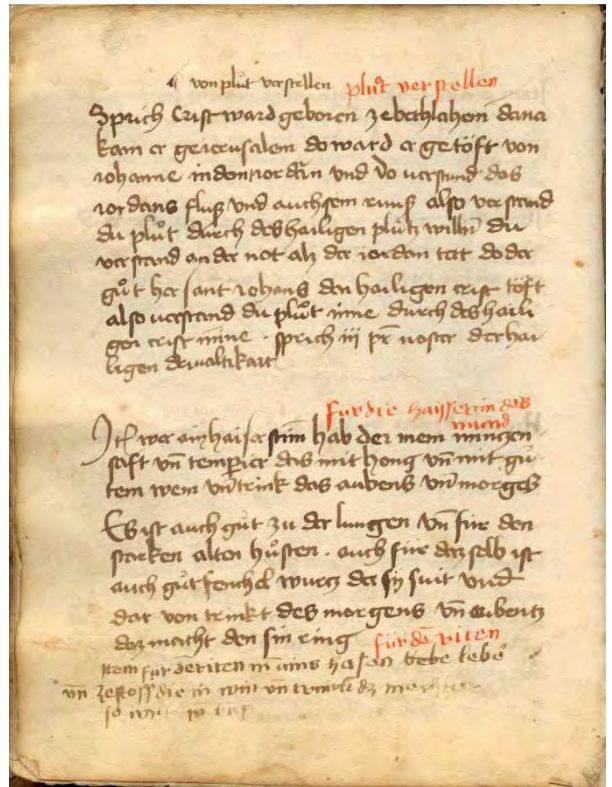 von plůt verstellen plůt verstellen
Sprich Crist ward geboren ze bethlahem dana
kam er ge ierusalem do ward er getöft von
iohanne in dem iordan und do verstund das
iordans fluß und auch sein runß also verstand
du plůt durch des hailigen plůtz willn du
verstand an der not alz der iordan tett do der
gůt her sant iohans den hailigen crist töft
also verstand du plůt inne durch des haili
gen crist mine . sprich iii pr noster der hai
ligen drivaltikait
für die haisserin des
mund
Itē wer ain haiser stim hab der nem minczen
saft vn̄ temperier das mit hong vn̄ mit gů
tem wein vn̄ trink das aubens vn̄ morges
Es ist auch gůt zu der lungen vn̄ für den
starken alten hůsten . auch für daz selb ist
auch gůt fenchel wurcz der sy suit und
dar von trinkt des morgens vn̄ aubentz
daz macht den sin ring für dē riten
Item für de riten nī ains hasen lebe
vn̄ zestoss die in win vn̄ trink dz
so